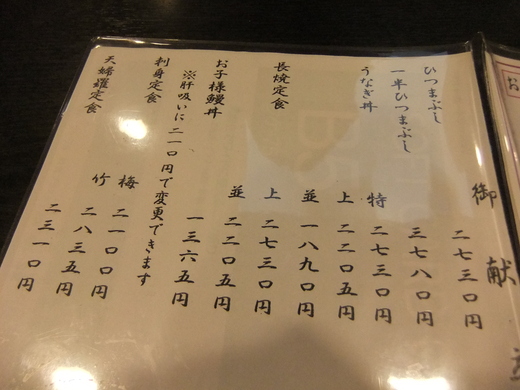 お
御献
ひつまぶし 二七三〇円
一半ひつまぶし 三七八〇円
うなぎ丼 特 二七三〇円
上 二二〇五円
並 一八九〇円
長焼定食 上 二七三〇円
並 二二〇五円
お子様鰻丼 一三六五円
※肝吸いに二一〇円で変更できます
刺身定食 梅 二一〇〇円
竹 二八三五円
天婦羅定食 二三一〇円